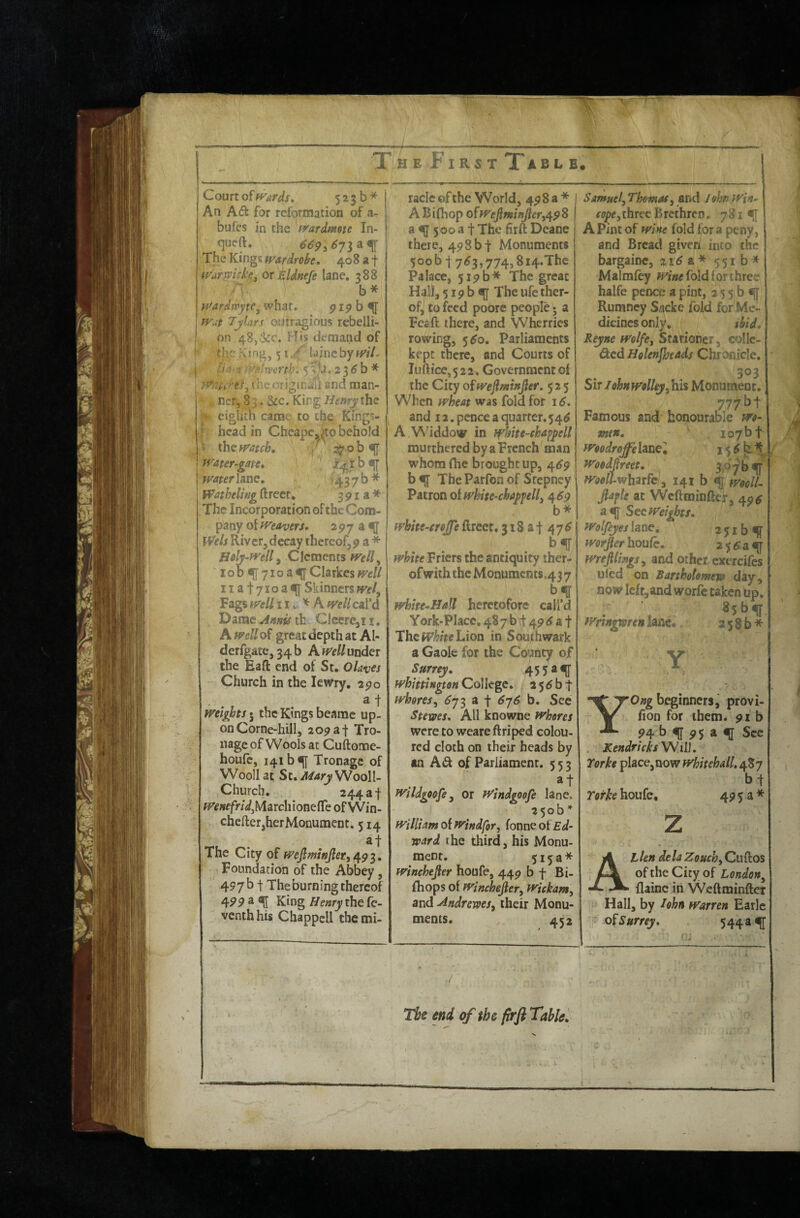 THE FIRST TABLE.
Court of Wards. 523 b *
An Act for reformation of a-
buses in the Wardmote In-
quest. 669, 673 a ¶
The Kings Wardrobe. 408 a †
Warwicke, or Eldnese lane. 388
b *
Wardwyte, what. 919 b ¶
Wat Tylars outragious rebelli-
on 48, &c. His demand of
the King, 51. slaine by Wil-
236 b *
the originall and man-
ner, 83. &c. King Henry the
eighth came to the Kings-
head in Cheape, to behold
the Watch. b ¶
Water-gate. 141 b ¶
Water lane. 437 b *
Watheling street. 391 a *
The Incorporation of the Com-
pany of Weavers. 297 a ¶
Wels River, decay thereof, 9 a *
Holy-Well, Clements Well,
10 b ¶ 710 a ¶ Clarkes Well
11 a † 710 a ¶ Skinners Wel,
Fags Well 11. * A Well cal'd
Dame Annis th Cleere, 11.
A Well of great depth at Al-
dersgate, 34 b A Well under
the East end of St. Olaves
Church in the Iewry. 290
a †
Weights; the Kings beame up-
on Corne-hill, 209 a † Tro-
nage of Wools at Custome-
house, 141 b ¶ Tronage of
Wooll at St. Mary Wooll-
Church. 244 a †
Wenefrid, Marchionesse of Win-
chester, her Monument. 514
a †
The City of Westminster, 493.
Foundation of the Abbey,
497 b † The burning thereof
499 a ¶ King Henry the se-
venth his Chappell the mi-
racle of the World, 498 a *
A Bishop of Westminster, 498
a ¶ 500 a † The first Deane
there, 498 b † Monuments
500 b † 763, 774, 814. The
Palace, 519 b * The great
Hall, 519 b ¶ The use ther-
of, to feed poore people; a
Feast there, and Wherries
rowing, 560. Parliaments
kept there, and Courts of
Iustice, 522. Government of
the City of Westminster. 525
When Wheat was sold for 16.
and 12. pence a quarter. 546
A Widdow in White-chappell
murthered by a French man
whom she brought up, 469
b ¶ The Parson of Stepney
Patron of White-chappell, 469
b *
White-crosse street. 318 a † 476
b ¶
White Friers the antiquity ther-
of with the Monuments. 437
b ¶
White-Hall heretofore call'd
York-Place. 487 b † 496 a †
The White Lion in Southwark
a Gaole for the County of
Surrey. 455 a ¶
Whittington College. 256 b †
Whores, 673 a † 676 b. See
Stewes. All knowne Whores
were to weare striped colou-
red cloth on their heads by
an Act of Parliament. 553
a †
Wildgoose, or Windgoose lane.
250 b *
William of Windsor, sonne of Ed-
ward the third, his Monu-
ment. 515 a *
Winchester house, 449 b † Bi-
shops of Winchester, Wickam,
and Andrewes, their Monu-
ments. 452
Samuel, Thomas, and Iohn Win-
cope, three Brethren. 781 ¶
A Pint of Wine sold for a peny,
and Bread given into the
bargaine, 216 a * 551 b *
Malmsey Wine sold for three
halfe pence a pint, 255 b ¶
Rumney Sacke sold for Me-
dicines only. ibid.
Reyne Wolfe, Stationer, colle-
cted Holensheads Chronicle.
303
Sir Iohn Wolley, his Monument.
777 b †
Famous and honourable Wo-
men. 107 b †
Woodrosse lane. 156 b *
Woodstreet. 307 b ¶
Wooll-wharfe, 141 b ¶ Wooll-
staple at Westminster, 496
a ¶ See Weights.
Wolseyes lane. 251 b ¶
Worster house. 256 a ¶
Wrestlings, and other exercises
used on Bartholomew day,
now left, and worse taken up.
85 b ¶
Wringwren lane. 258 b *
Y
YOng beginners, provi-
sion for them. 91 b
94 b ¶ 95 a ¶ See
Kendricks Will.
Yorke place, now Whitehall. 487
b †
Yorke house. 495 a *
Z
ALlen de la Zouch, Custos
of the City of London,
slaine in Westminster
Hall, by Iohn Warren Earle
of Surrey. 544 a ¶
The end of the first Table.